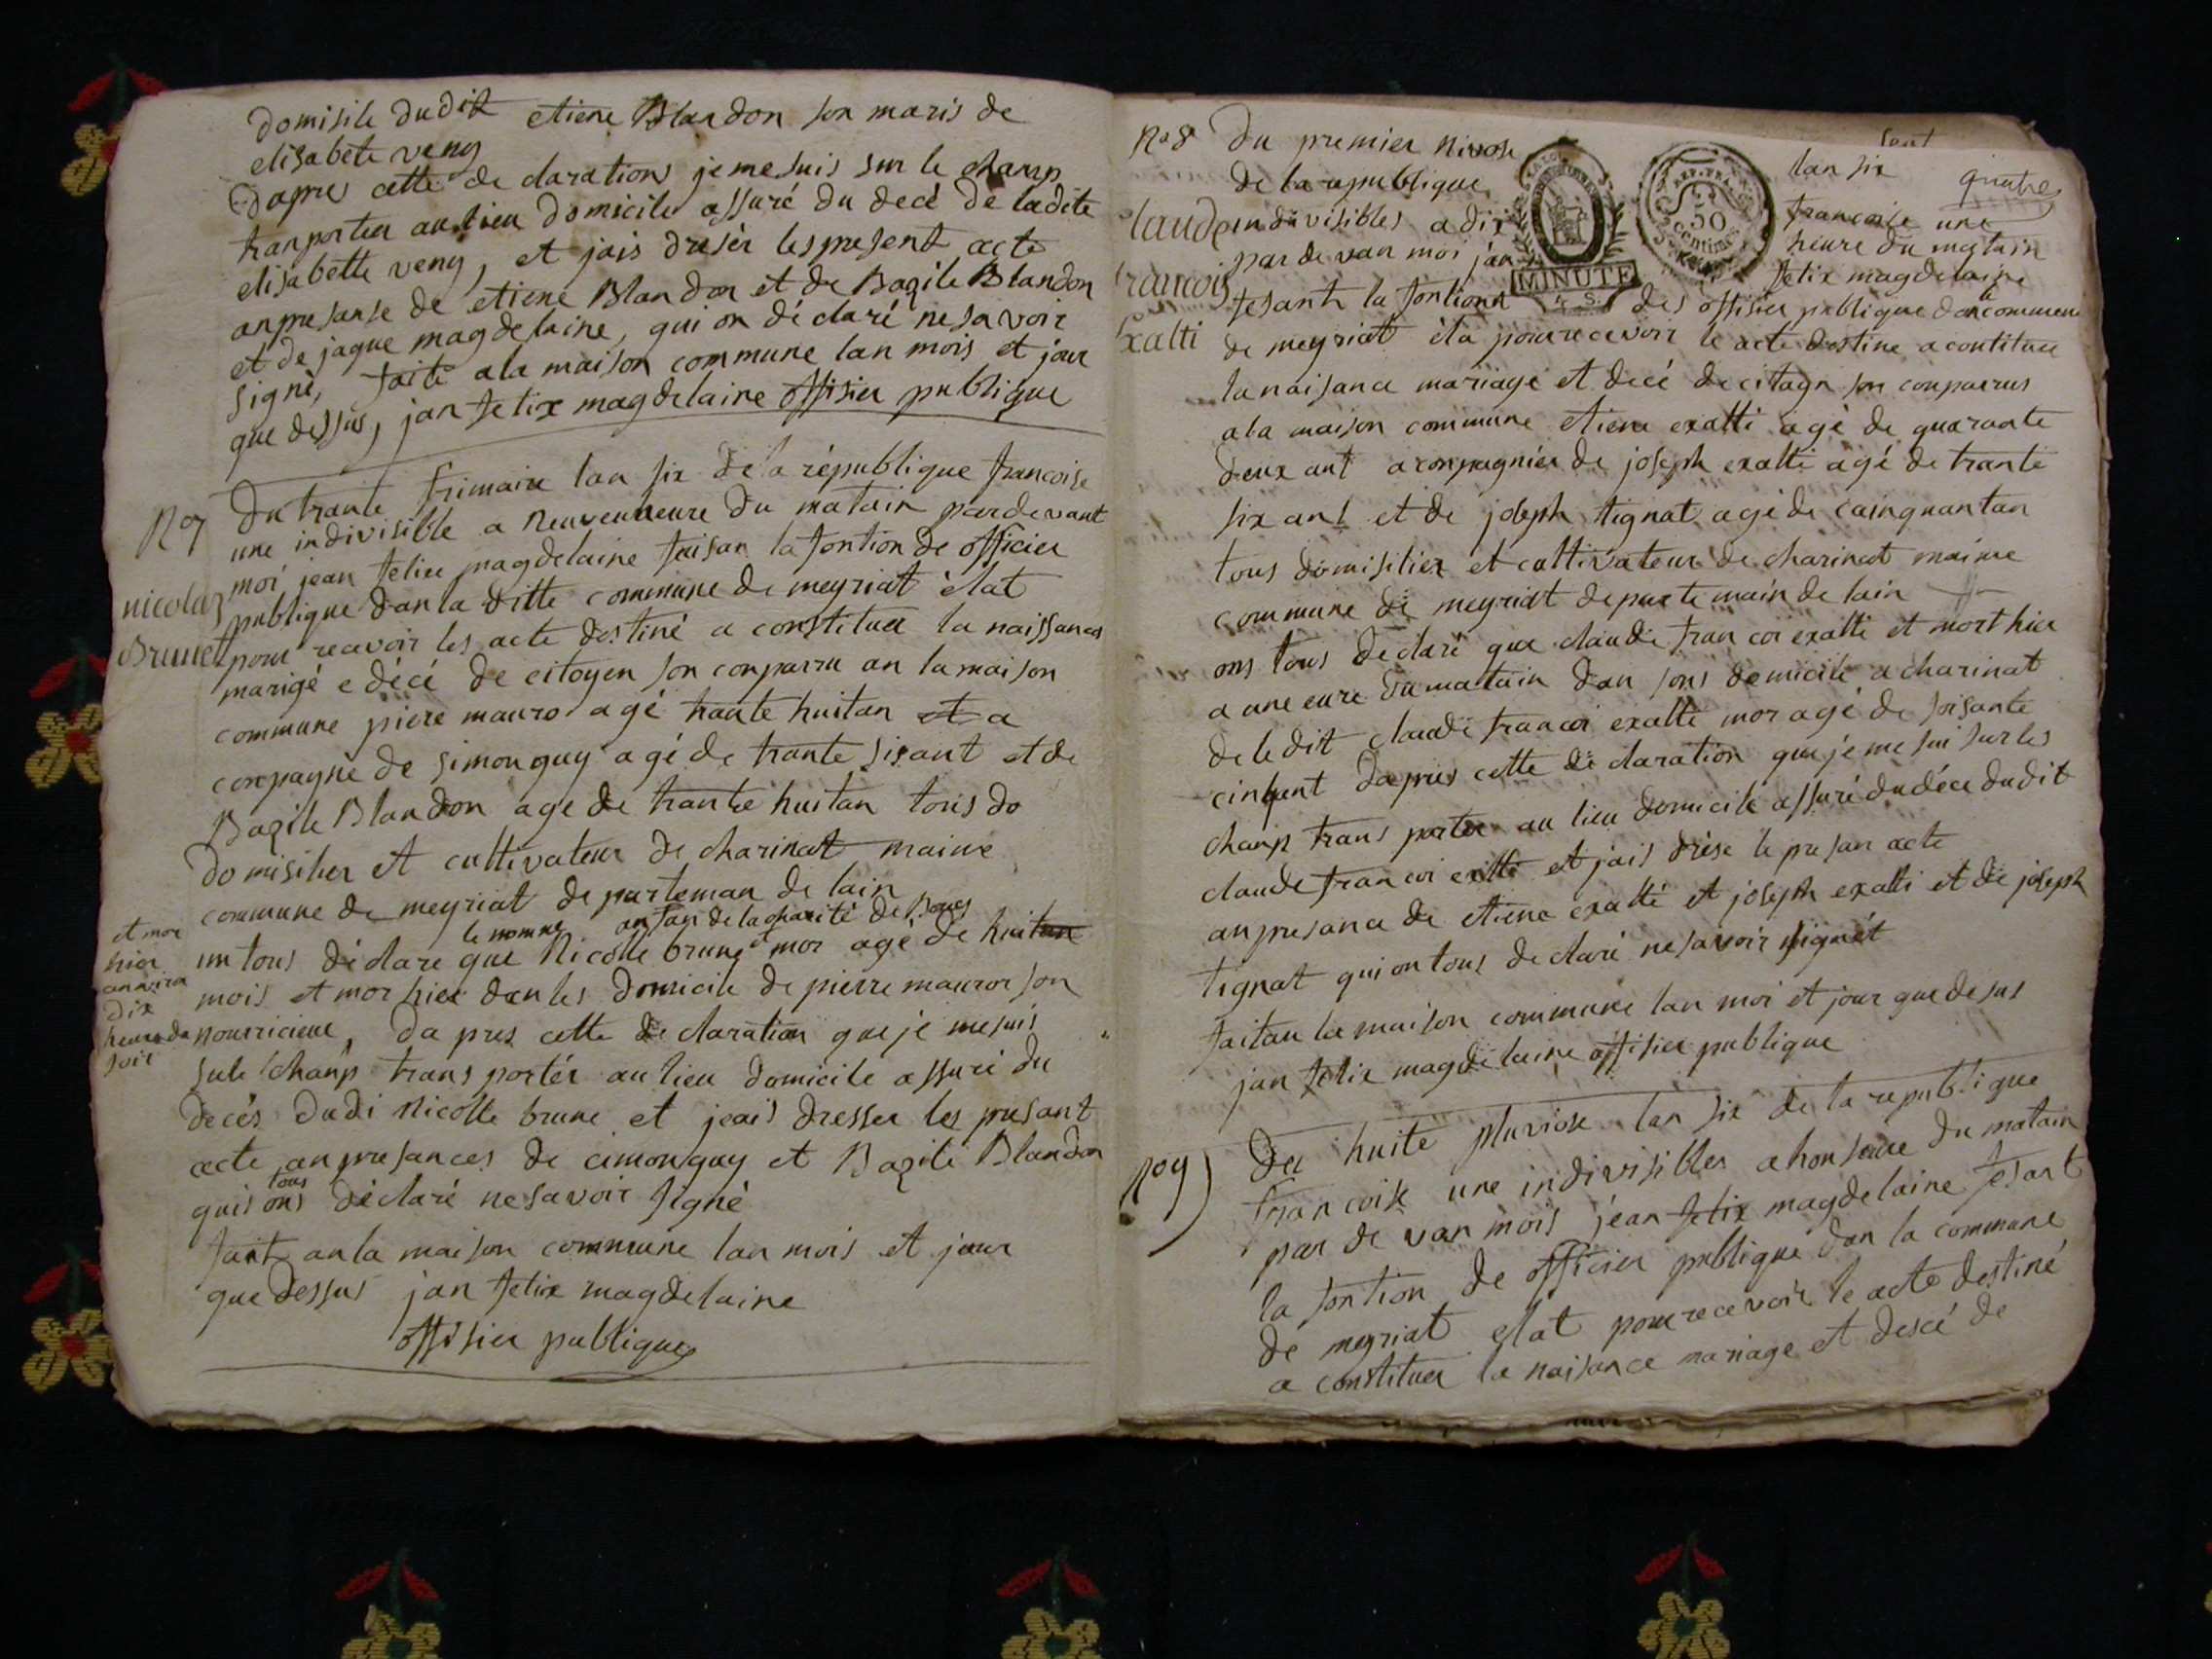 domisile dudit etiene Blandon son maris de
elisabete veny
Dapres cette de claration je me suis sur le champ
tranporter au lieu domicile assuré du decé de ladite
elisabette veny, et jais dresér les present acte
anpresanse de etiene Blandon et de Bazile Blandon
et de jaque magdelaine, qui on déclaré ne savoir
signé, faite a la maison commune lan mois et jour
que dessus, jan felix magdelaine offisier publique
No 7
nicolas
Brunet
Du trante frimaire lan six de la république francoise
une indivisible a neuveuheure du matain pardevant
moi jean felix magdelaine faisan la fontion de officier
publique dan la ditte commune de meyriat élat
pour recevoir les acte destiné a constituer la naissances
marigé e décé de citoyen son conparru an la maison
commune piere mauro agé trante huitan et a
conpagné de simon guy agé de trante sixant et de
Bazile Blandon age de trante huitan tous do
domisilier et cultivateur de charinat maime
commune de meyriat de parteman de lain
le nomme anfan de la charité de Bourg
un tous déclare que Nicolle brune et mor agé de huitan
et mor
hier
anviron
dix
heure du
soir
mois et mor hier dan les domicile de pierre mauror son
nourricieur, da pres cette de claration que je me suis
sule champ trans portér au lieu domicile assuré du
decés dudi Nicolle brune et jeais dresser les presant
acte an presances de cimon guy et Bazile Blandon
tous
quis ons déclaré ne savoir signé
fait an la maison commune lan mois et jour
que dessus jan felix magdelaine
offisier publique
No 8
laude
francois
Exalti
MINUTE
4 S.
REP. FRA.
50
centimes
quatre
Du premier nivose lan six
de la republique francoise une
indivisibles a dix heure du matain
par de van moi jan felix magdelaine
fesant la fontionn des offisier publique dan la commune
de meyriat éla pour recevoir le acte destine a contituer
la naisance mariage et decé de citayn son conparrus
a la maison commune etiene exalti agé de quarante
deux ant aconpagnier de joseph exalti agé de trante
six ans et de joseph tignat agé de cainquantan
tous domisilier et cultivateur de charinat maime
commune de meyriat departemain de lain
ons tous declaré que claude francoi exalti et mort hier
a une eure du matain dan sons domicile a charinat
de le dit claude francoi exalti mor agé de soisante
cinqant dapres cette de claration que je me sui sur les
chanp trans porter au lieu domicile assuré du déce dudit
claude francoi exilti et jais drése le presan acte
anpresance de etiene exalti et joseph exalti et de joseph
tignat qui on tous declaré ne savoir signét
faitan la maison commune lan moi et jour que desus
jan felix magdelaine offisier publique
No 9
Du huite pluviose lan six de la republique
francoise une indivisibles a honseure du matain
par de van mois jéan felix magdelaine fesant
la fontion de officier publique dan la commune
de meyriat élat pour recevoir le acte destiné
a constituer la naisance mariage et descé de